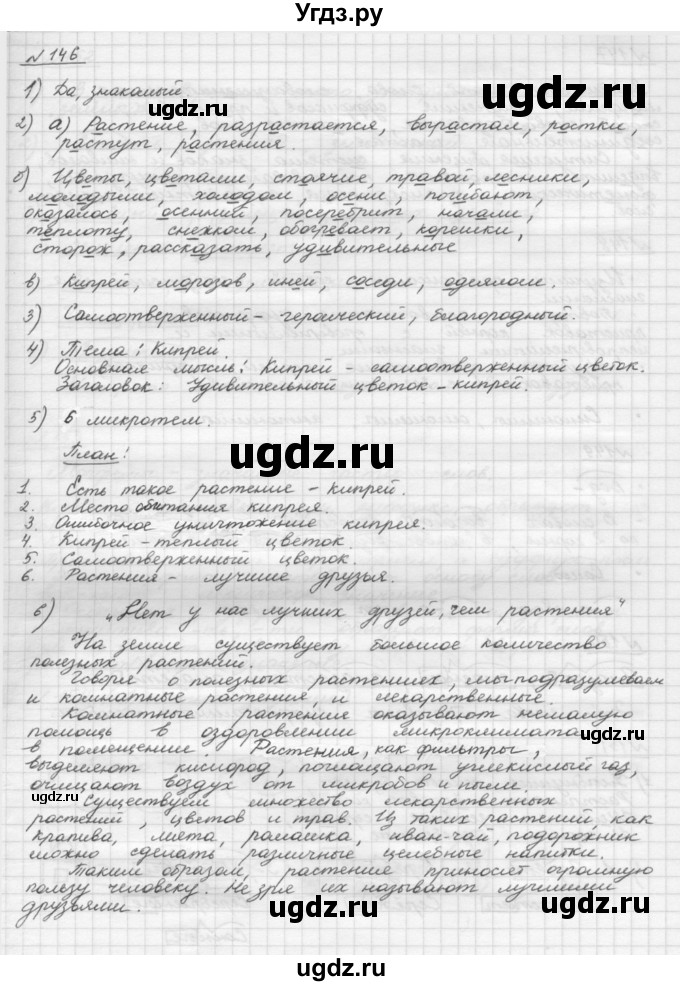 Угдз.ру
№ 146
1) Да, знакомый.
ugdz.ru
2) а) Растение, разрастается, вырастал, ростки,
растут, растения.
б) Цветы, цветами, стоячие, травой, лесники,
молодыми, холодом, осени, погибают,
оказалось, осенний, посеребрит, ночами,
теплоту, снежком, обогревает, корешки,
сторож, рассказать, удивительные
ugdz.ru
в) Кипрей, морозов, иней, соседи, одеялом.
3) Самоотверженный - героический, благородный.
4) Тема: Кипрей.
Основная мысль: Кипрей - самоотверженный цветок.
Заголовок: Удивительный цветок - кипрей.
5) 6 микротем.
ugdz.ru
План:
1. Есть такое растение - кипрей.
2. Место обитания кипрея.
3. Ошибочное уничтожение кипрея.
4. Кипрей - теплый цветок.
5. Самоотверженный цветок.
6. Растения - лучшие друзья.
ugdz.ru
6) „Нет у нас лучших друзей, чем растения“
На земле существует большое количество
полезных растений.
Говоря о полезных растениях, мы подразумеваем
и комнатные растения, и лекарственные.
Комнатные растение оказывают немалую
помощь в оздоровлении микроклимата
в помещении. Растения, как фильтры,
ugdz.ru
выделяют кислород, поглощают углекислый газ,
очищают воздух от микробов и пыли.
ugdz.ru
Существуем множество лекарственных
растений, цветов и трав. Из таких растений, как
крапива, мята, ромашка, иван-чай, подорожник
можно сделать различные целебные напитки.
Таким образом, растение приносят огромную
пользу человеку. Не зря их называют лучшими
друзьями.
ugdz.ru
ugdz.ru